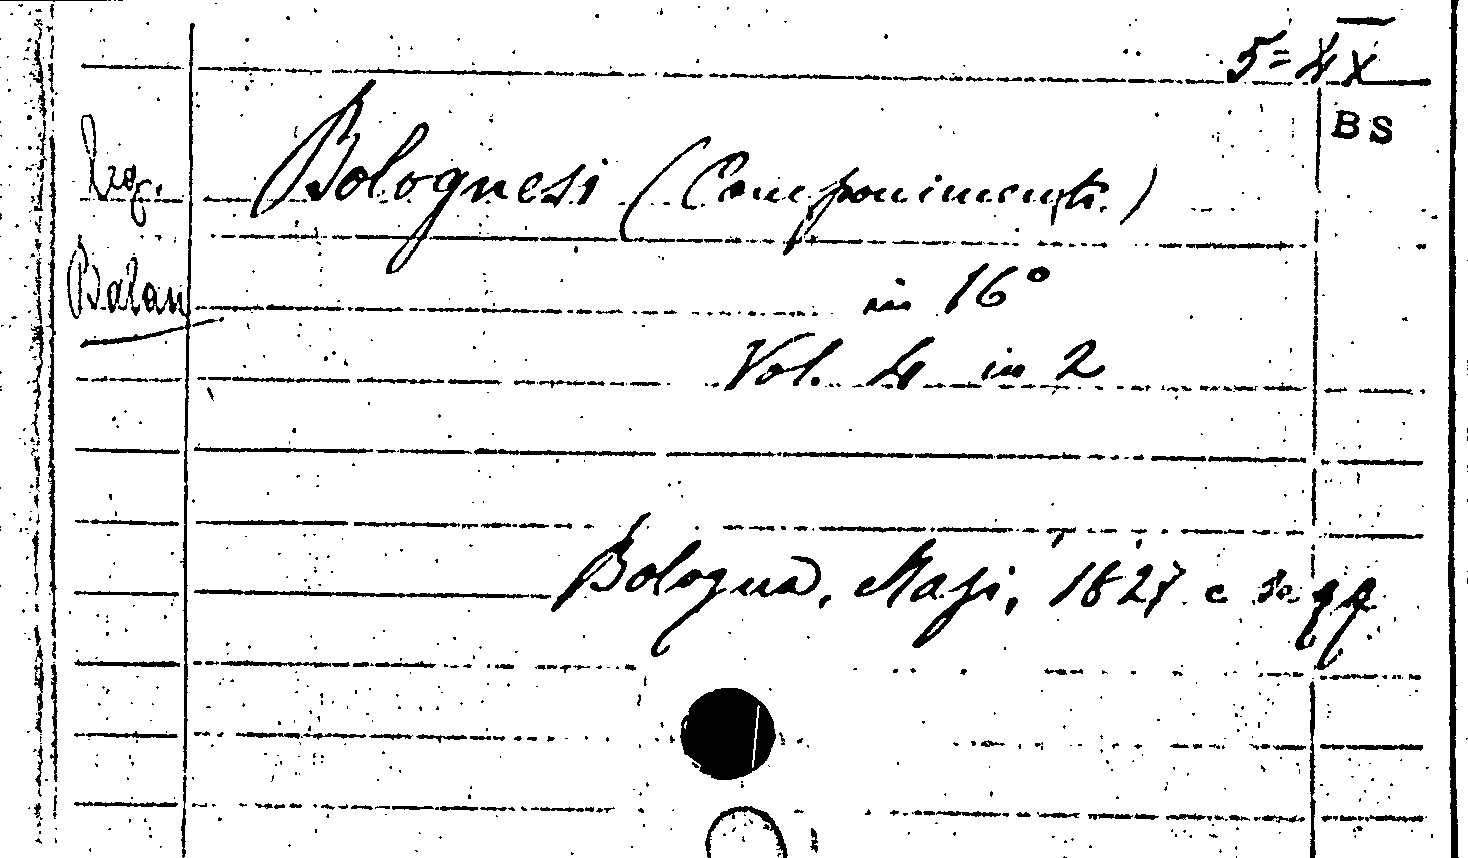 5=4 X
BS
Leg. Bolognesi (Componimenti.)
Balan
in 16°
Vol. 4 in 2
Bologna, Masi, 1827 e seqq